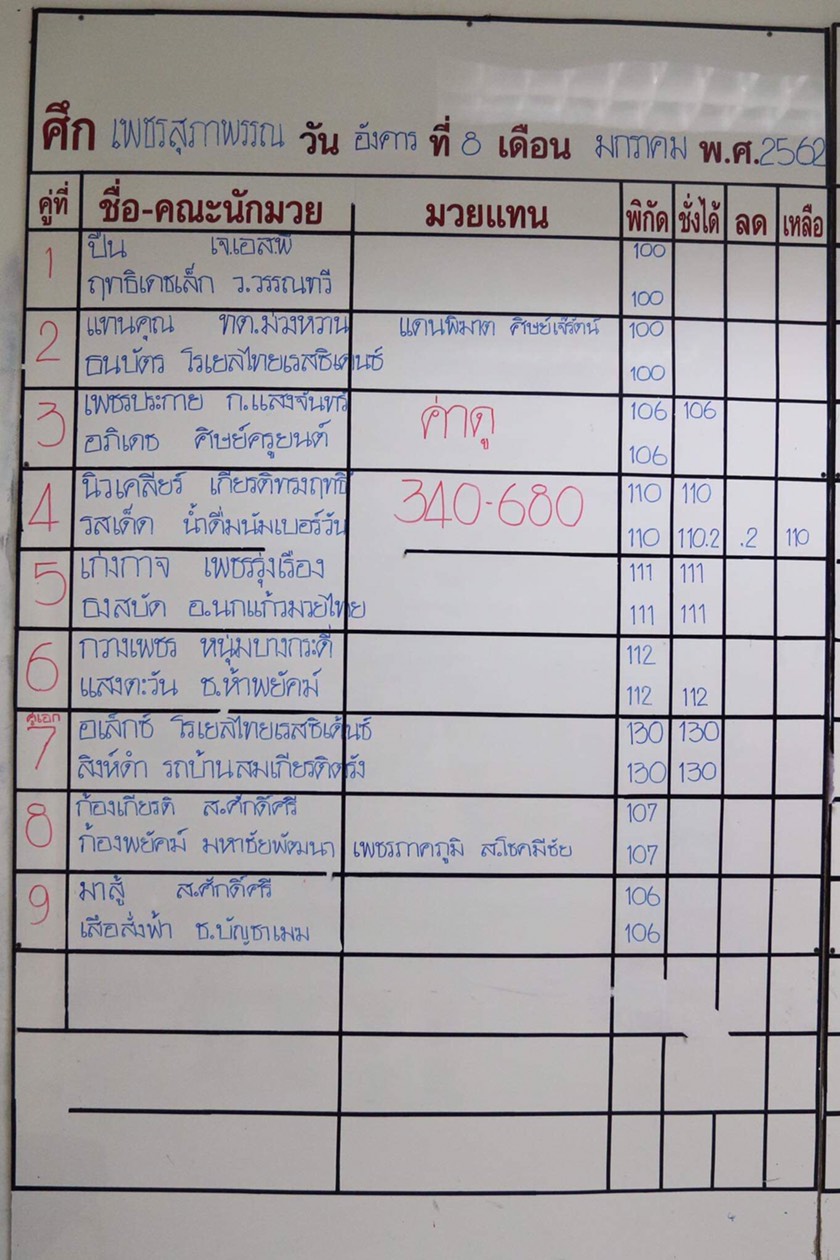 ศึก เพชรสุภาพรรณ วัน อังคาร ที่ 8 เดือน มกราคม พ.ศ.2562
คู่ที่ ชื่อ-คณะนักมวย มวยแทน พิกัด ชั่งได้ ลด เหลือ
1 ปืน เจ.เอส.พี 100
ฤทธิเดชเล็ก ว.วรรณทวี 100
2 แทนคุณ ทต.ม่วงหวาน แดนพิฆาต ศิษย์เจ๊รัตน์ 100
ธนบัตร โรเยลไทยเรสซิเด้นซ์ 100
3 เพชรประกาย ก.แสงจันทร์ ค่าดู 106 106
อภิเดช ศิษย์ครูยนต์ 106
4 นิวเคลียร์ เกียรติทรงฤทธิ์ 340-680 110 110
รสเด็ด น้ำดื่มนัมเบอร์วัน 110 110.2 .2 110
5 เก่งกาจ เพชรรุ่งเรือง 111 111
ธงสบัด อ.นกแก้วมวยไทย 111 111
6 กวางเพชร หนุ่มบางกระดี่ 112
แสงตะวัน ช.ห้าพยัคฆ์ 112 112
คู่เอก
7 อเล็กซ์ โรเยลไทยเรสซิเด้นซ์ 130 130
สิงห์ดำ รถบ้านสมเกียรติตรัง 130 130
8 ก้องเกียรติ ส.ศักดิ์ศรี 107
ก้องพยัคฆ์ มหาชัยพัฒนา เพชรภาคภูมิ ส.โชคมีชัย 107
9 มาสู้ ส.ศักดิ์ศรี 106
เสือสั่งฟ้า ช.บัญชาเมฆ 106